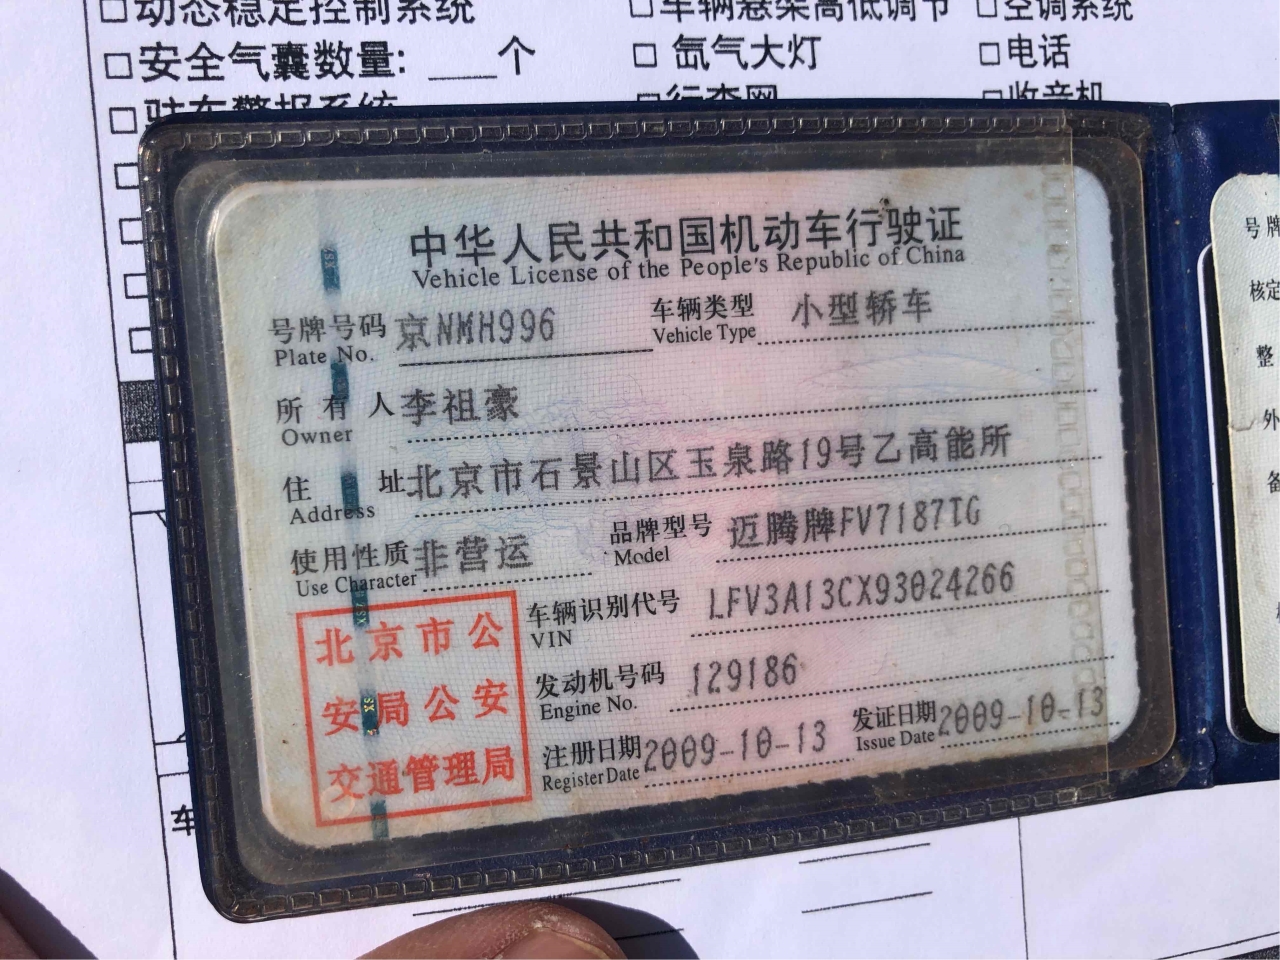 动态稳定控制系统 □车辆悬架高低调节 □空调系统
□安全气囊数量: ___个 □ 氙气大灯 □电话
□驻车警报系统 □行李网 □收音机
中华人民共和国机动车行驶证
Vehicle License of the People's Republic of China
号牌号码 京NMH996 车辆类型 小型轿车
Plate No. Vehicle Type
所有人 李祖豪
Owner
住址 北京市石景山区玉泉路19号乙高能所
Address
使用性质 非营运 品牌型号 迈腾牌FV7187TG
Use Character Model
车辆识别代号 LFV3A13CX93024266
VIN
发动机号码 129186
Engine No.
注册日期 2009-10-13 发证日期 2009-10-13
Register Date Issue Date
北京市公
安局公安
交通管理局
号牌
核定
整
外
备
车